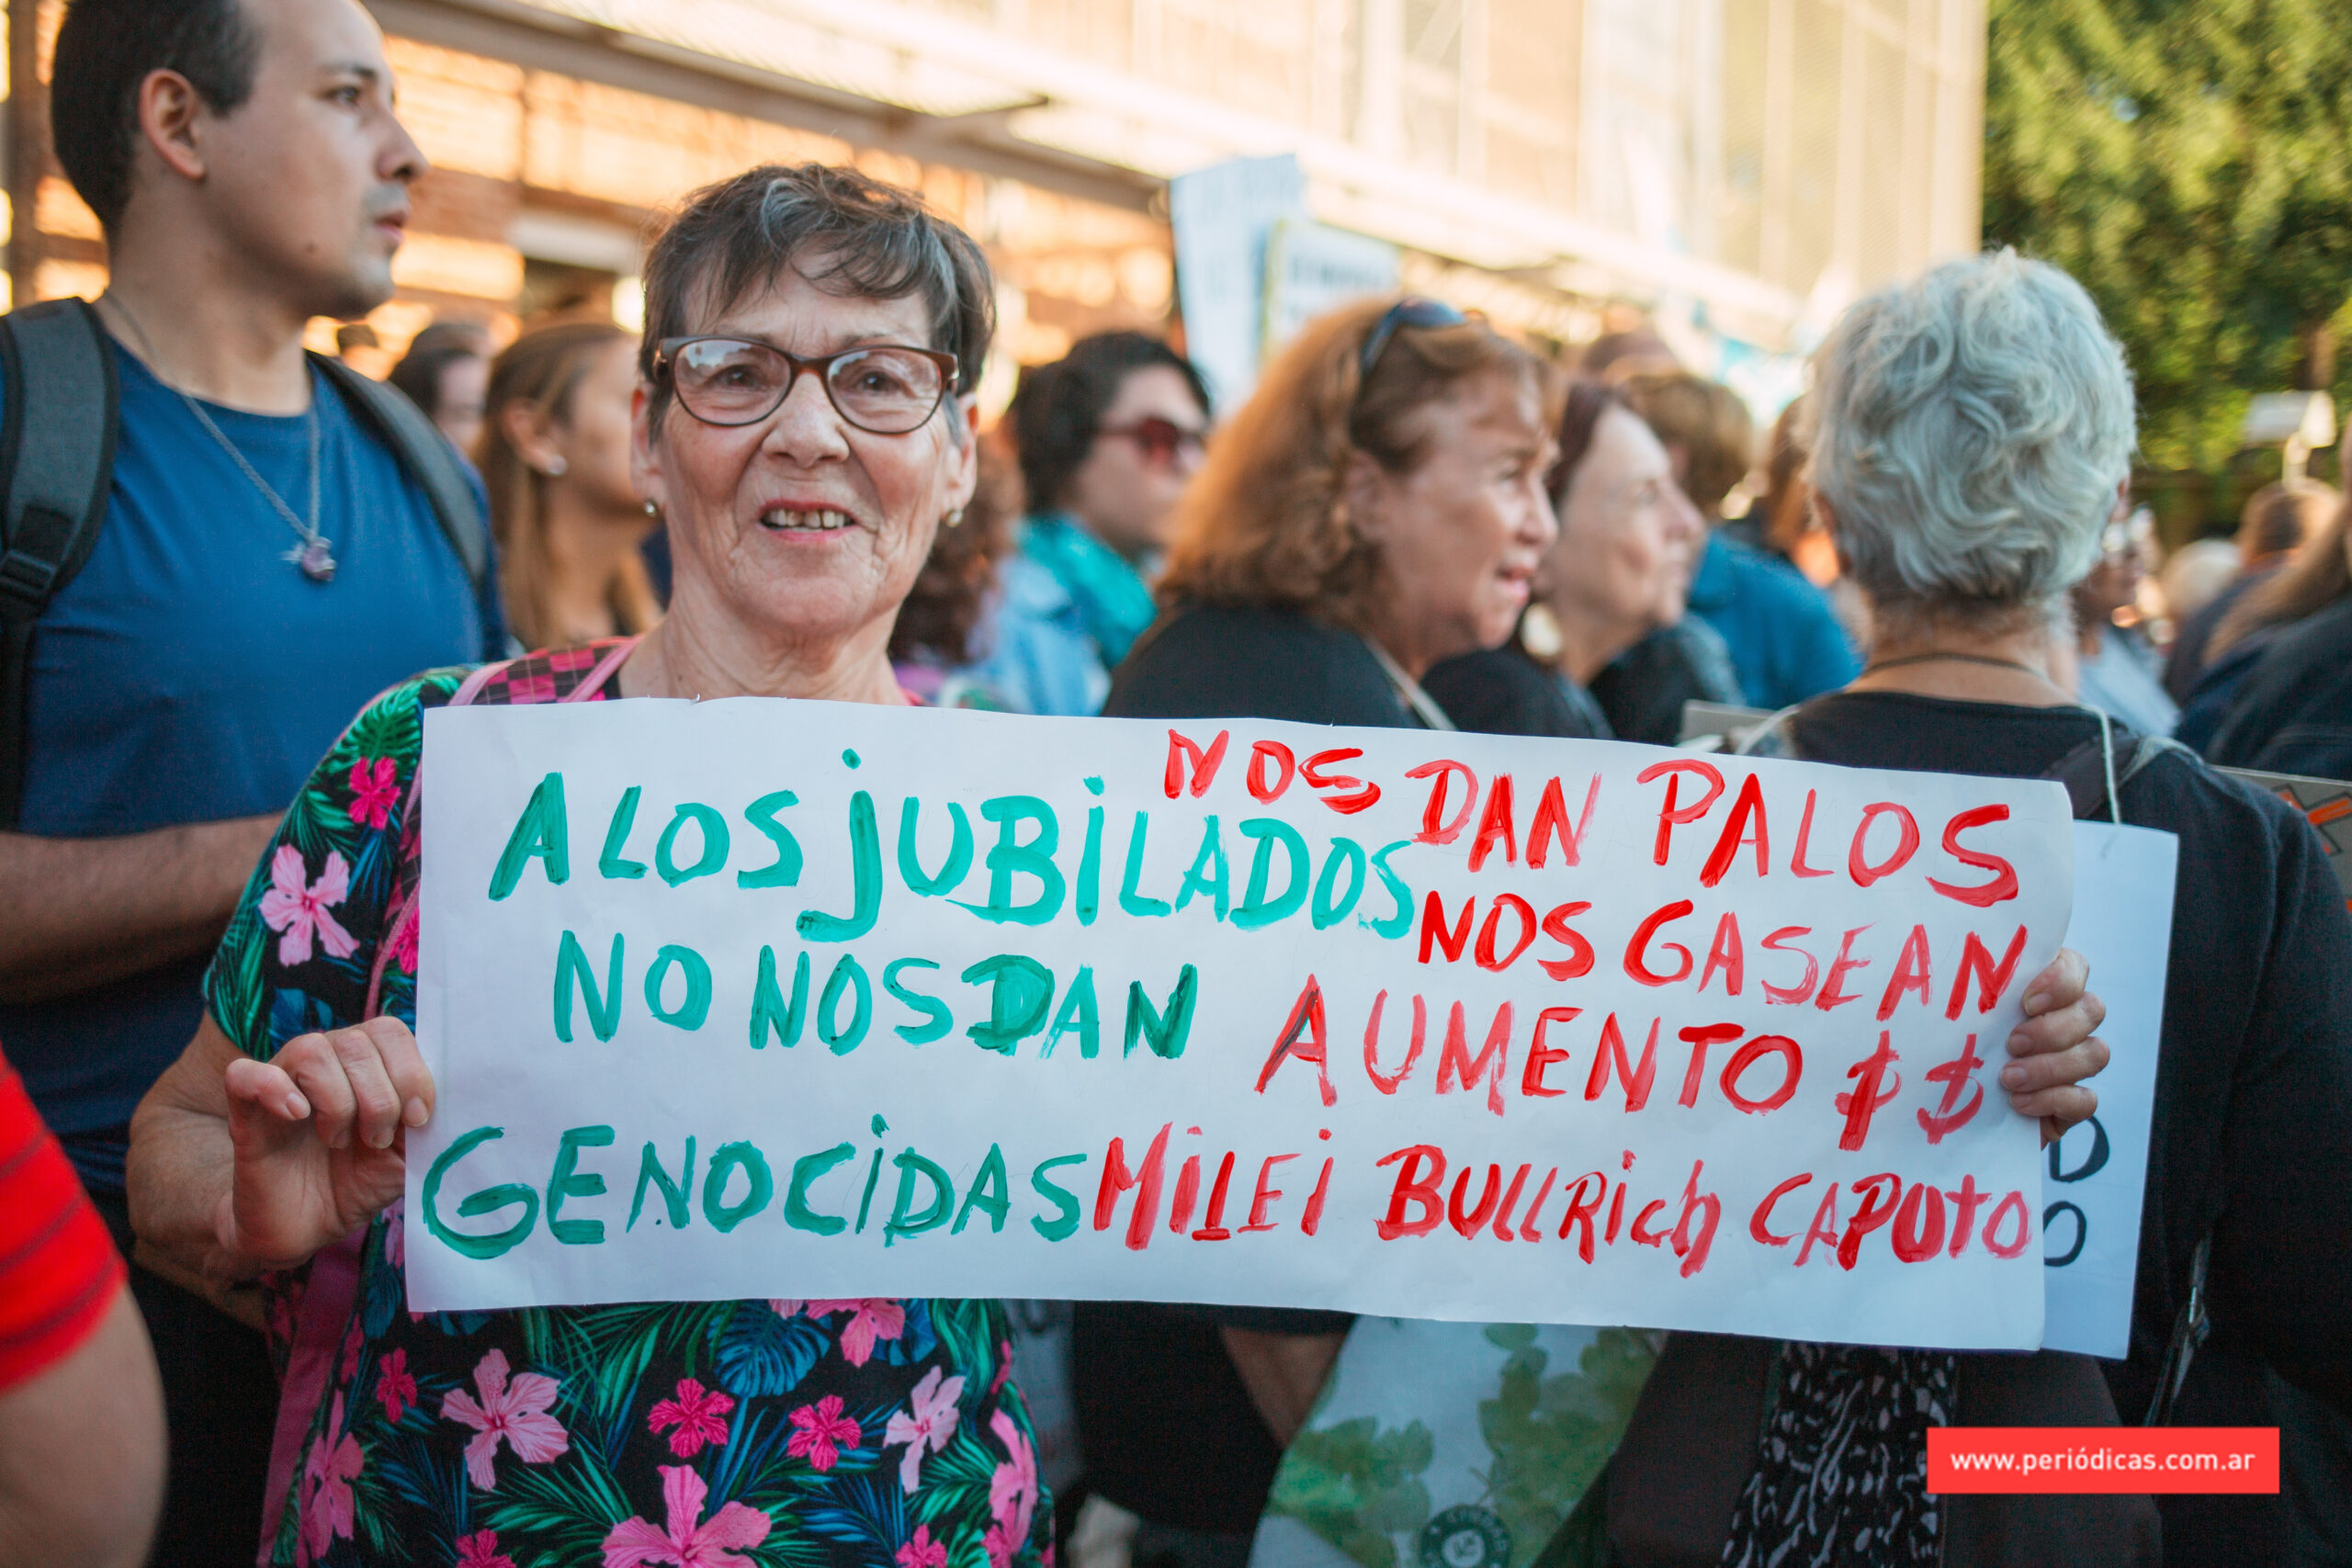 A LOS JUBILADOS NOS DAN PALOS
NOS GASEAN
NO NOS DAN AUMENTO $$
GENOCIDAS MILEI BULLRICH CAPUTO
www.periódicas.com.ar